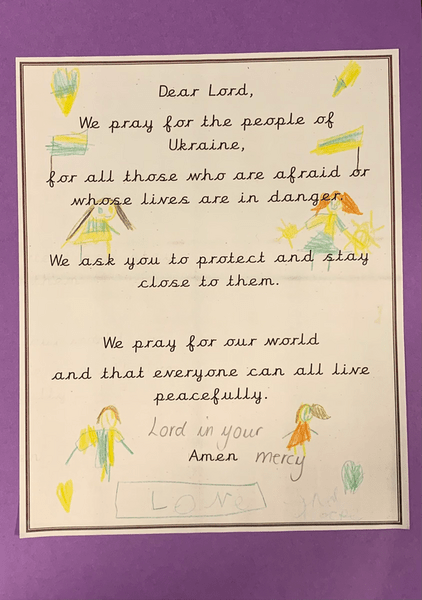 Dear Lord,
We pray for the people of
Ukraine,
for all those who are afraid or
whose lives are in danger.
We ask you to protect and stay
close to them.
We pray for our world
and that everyone can all live
peacefully.
Lord in your
Amen mercy
Love